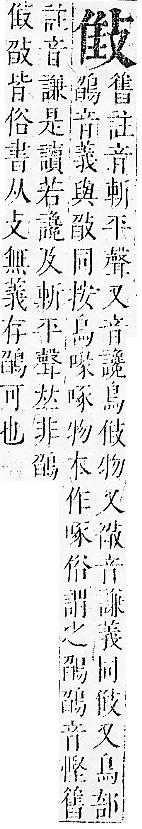 舊註音斬平聲又音讒鳥物又㪠音謙義同又鳥部
鵮音義與㪠同按鳥喙啄物本作啄俗謂之鵮鵮音慳舊
註音謙是讀若讒及斬平聲𠀤非鵮
㪠皆俗書从攴無義存鵮可也